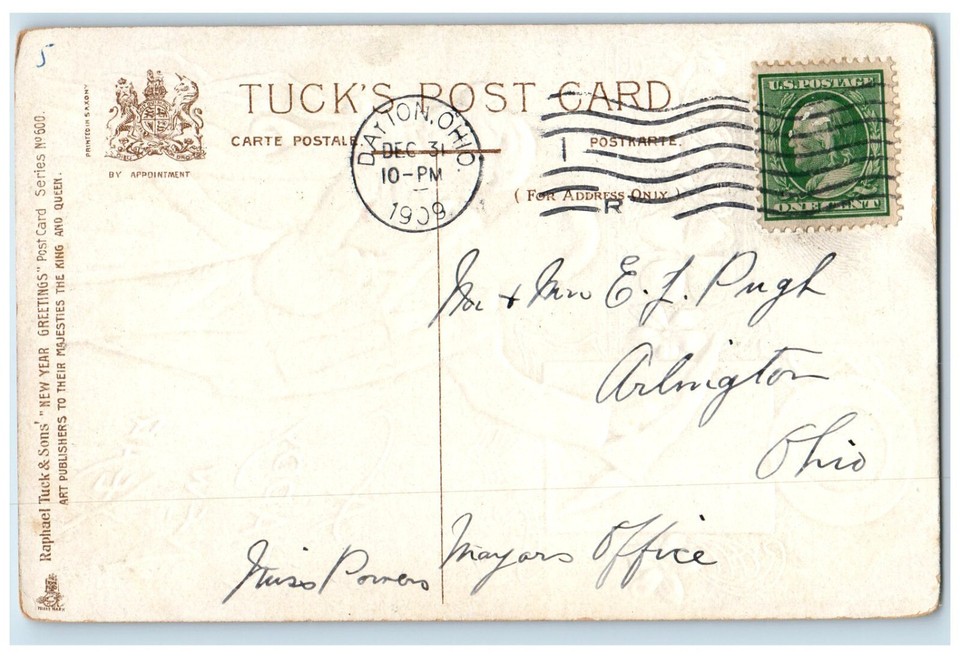 5
TUCK'S POST CARD
CARTE POSTALE.
POSTKARTE.
( FOR ADDRESS ONLY. )
BY APPOINTMENT
PRINTED IN SAXONY
Raphael Tuck & Sons' "NEW YEAR GREETINGS" Post Card Series Nº 600.
ART PUBLISHERS TO THEIR MAJESTIES THE KING AND QUEEN.
DAYTON, OHIO.
DEC 31
10-PM
1909
1
R
U.S. POSTAGE
ONE CENT
Mr + Mrs E. L. Pugh
Arlington
Ohio
Miss Powers Mayors Office